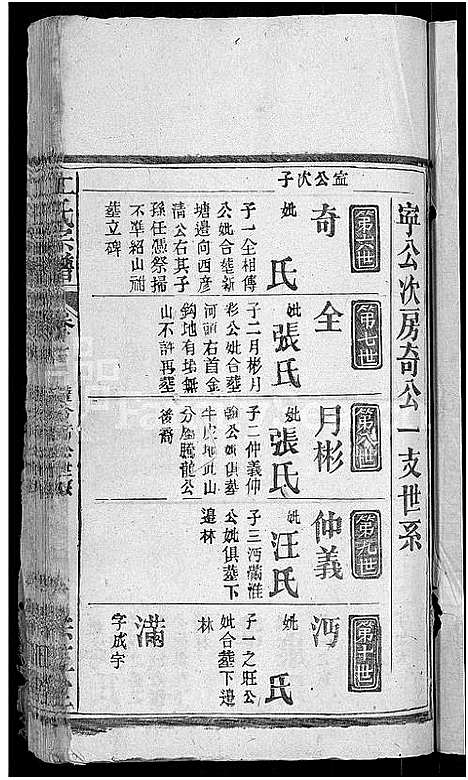 寜公次房奇公一支世系
第六世
寍公次子
奇
妣
氏
子一全相傳
公妣合塟新
塘邊向西彦
清公右其子
孫任憑祭掃
不凖紹山祔
塟立碑
第七世
全
妣 張氏
子二月彬月
彩公妣合塟
河頭右首金
鈎地有埇無
山不許再塟
第八世
月彬
妣 張氏
子二仲義仲
公妣俱塟
牛皮地山
分騰龍公
後裔
第九世
仲義
妣 汪氏
子三沔滿淮
公妣俱塟下
邉林
第十世
沔
妣
氏
子一之旺公
妣合塟下邉
林
滿
字成宇
氏宗譜
卷